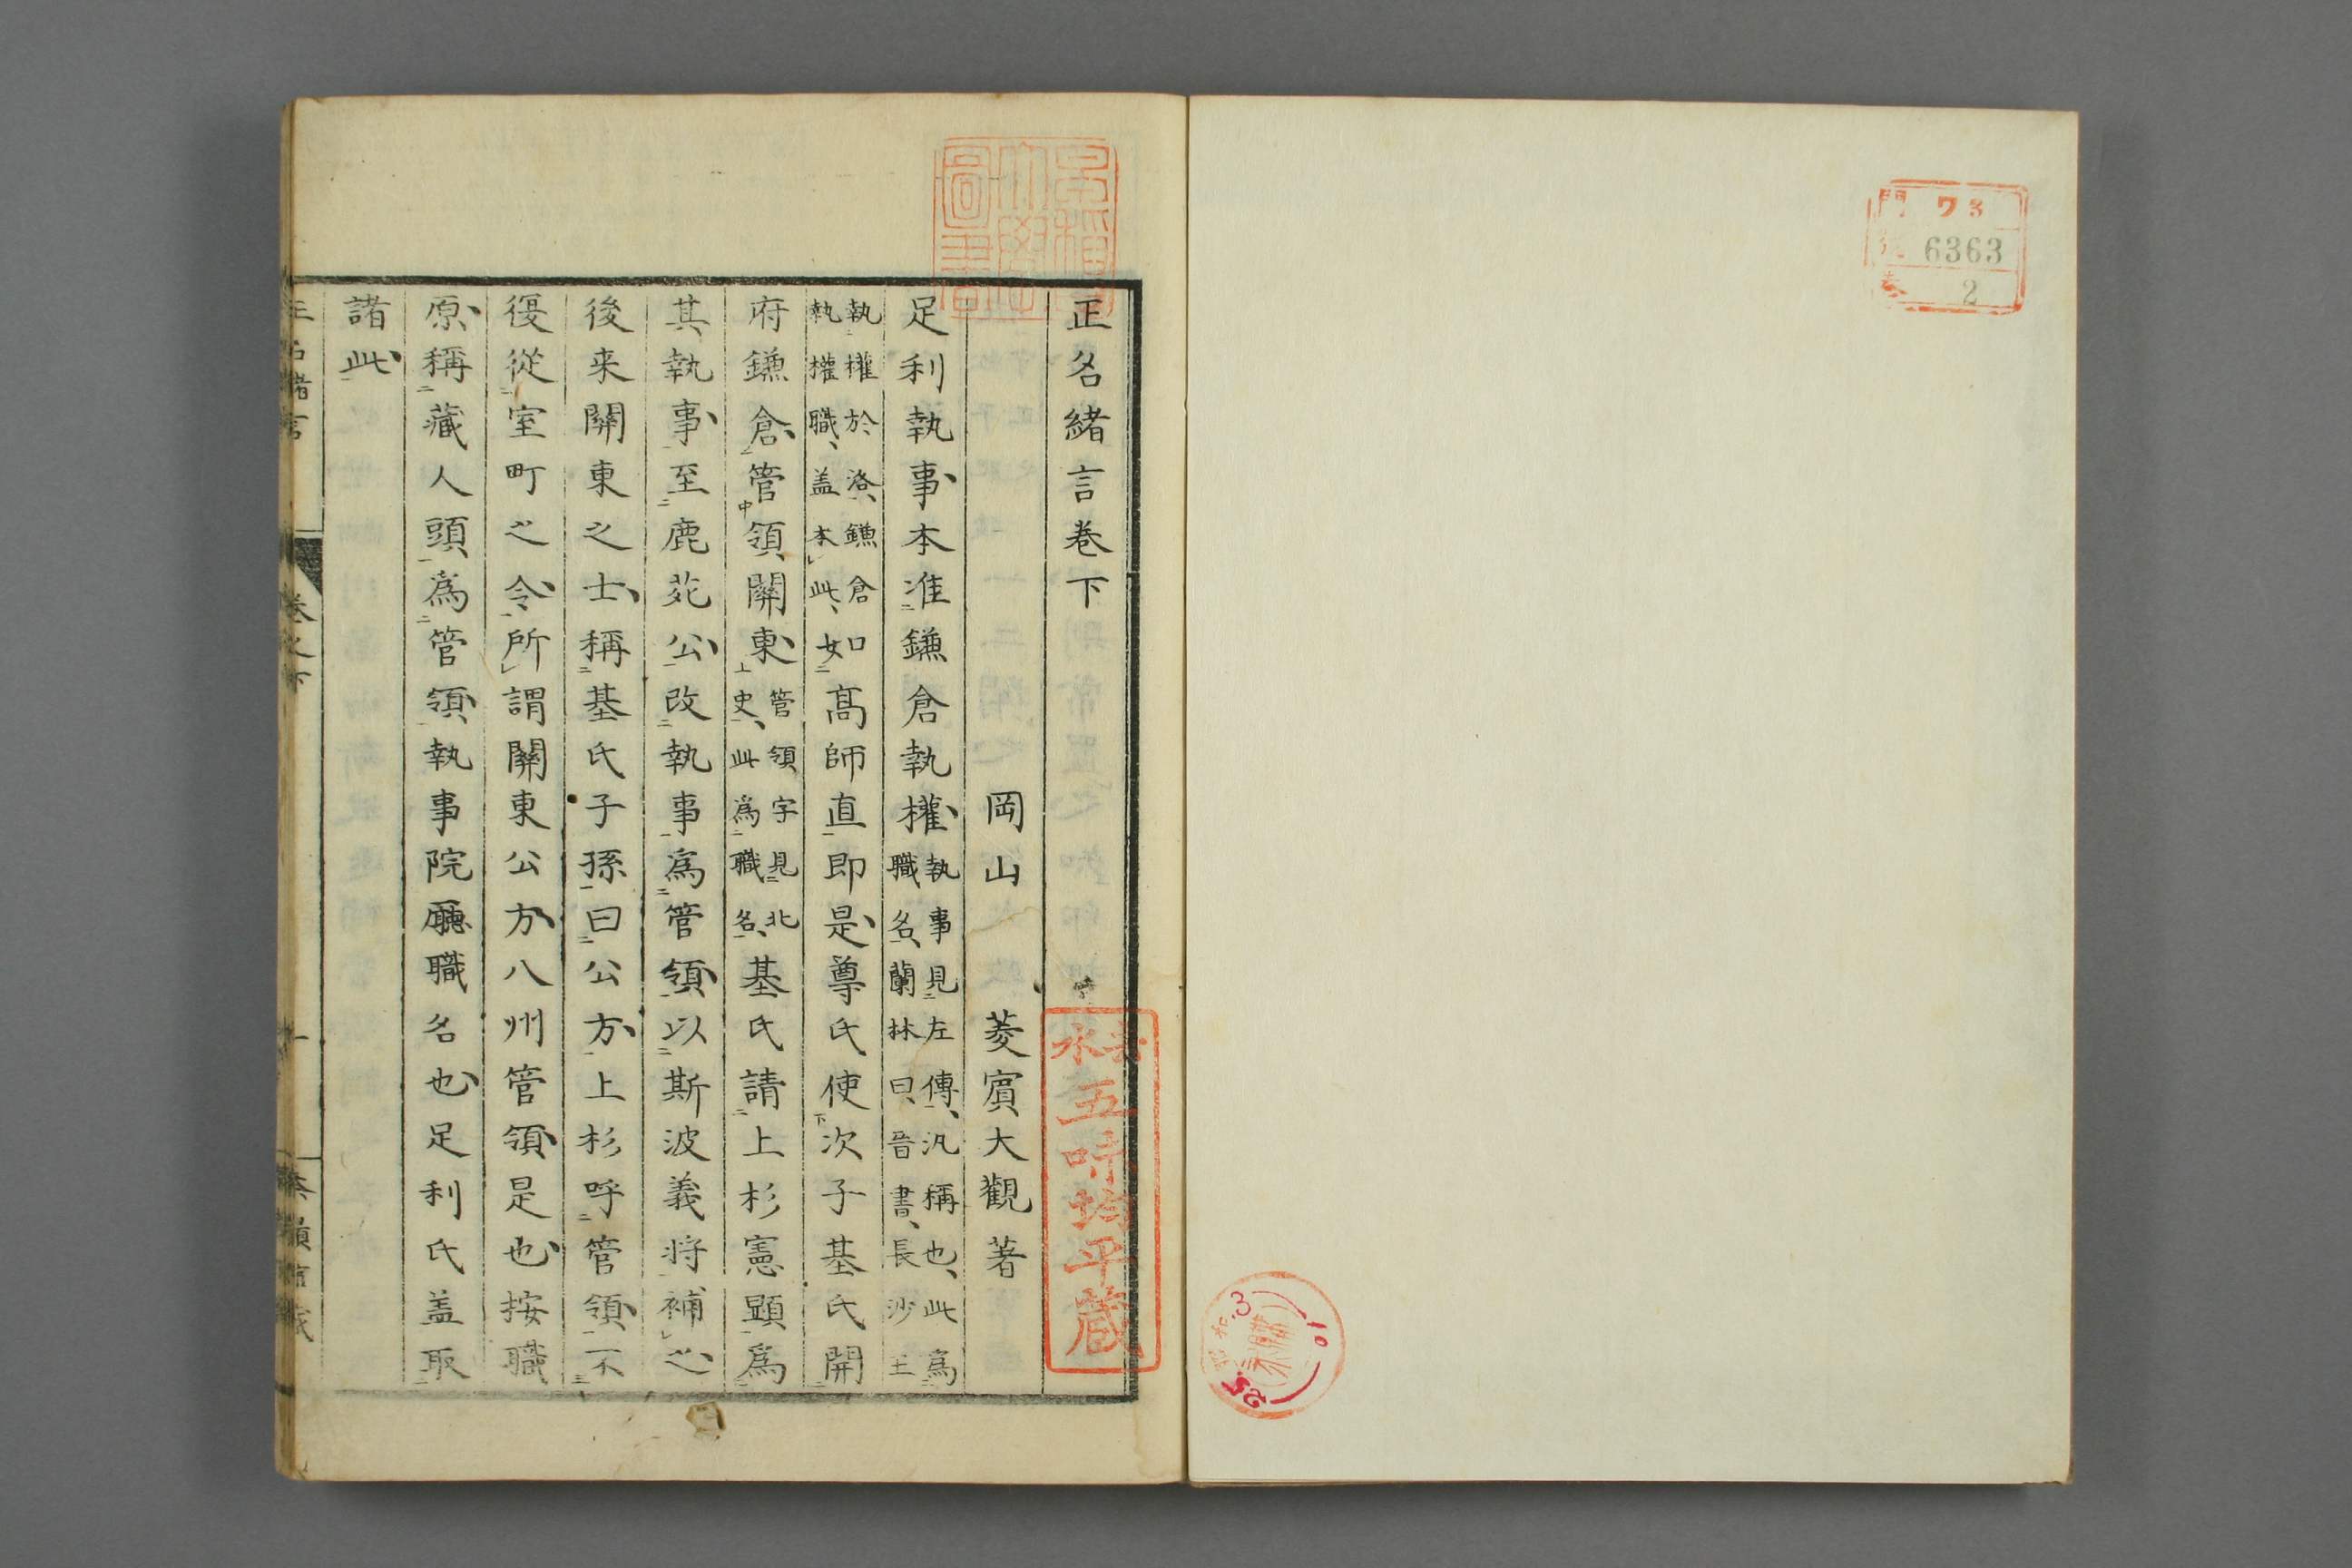 門 73
號 6363
巻 2
正名緒言巻下
岡山 菱賓大觀著
足利執事、本准鎌倉執權、執事見左傳、汎稱也、此爲職名、蘭林曰、晉書、長沙王
執權於洛、鎌倉執權職、盖本此、如口髙師直即是、尊氏使次子基氏開
府鎌倉、管領關東、管領字見北史、此爲職名、基氏請上杉憲顕爲
其執事、至鹿苑公、改執事爲管領、以斯波義将補之、
後来關東之士、稱基氏子孫曰公方、上杉呼管領、不
復從室町之令、所謂關東公方、八州管領是也、按職
原、稱藏人頭爲管領、執事院廳職名也、足利氏盖取
諸此、
正名緒言 巻之下 一
五味均平蔵